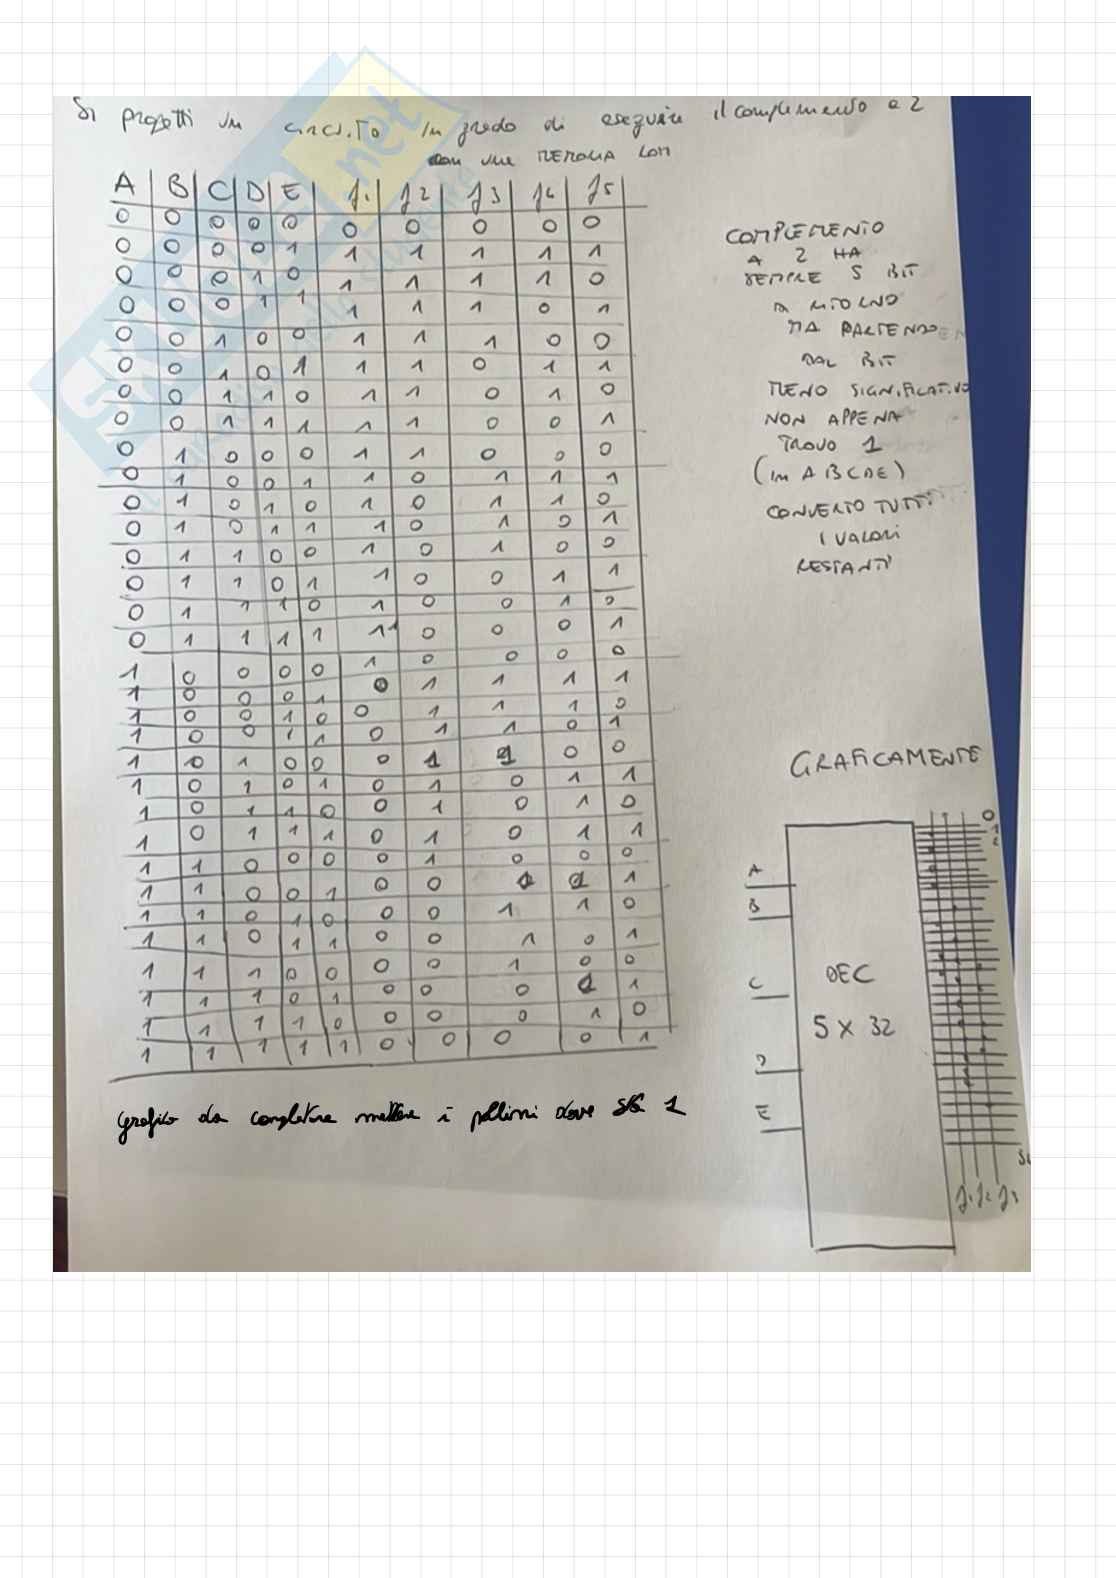 Si progetti un circuito in grado di eseguire il complemento a 2
con una MEMORIA ROM
A B C D E f1 f2 f3 f4 f5
0 0 0 0 0 0 0 0 0 0
0 0 0 0 1 1 1 1 1 1
0 0 0 1 0 1 1 1 1 0
0 0 0 1 1 1 1 1 0 1
0 0 1 0 0 1 1 1 0 0
0 0 1 0 1 1 1 0 1 1
0 0 1 1 0 1 1 0 1 0
0 0 1 1 1 1 1 0 0 1
0 1 0 0 0 1 1 0 0 0
0 1 0 0 1 1 0 1 1 1
0 1 0 1 0 1 0 1 1 0
0 1 0 1 1 1 0 1 0 1
0 1 1 0 0 1 0 1 0 0
0 1 1 0 1 1 0 0 1 1
0 1 1 1 0 1 0 0 1 0
0 1 1 1 1 1 0 0 0 1
1 0 0 0 0 1 0 0 0 0
1 0 0 0 1 0 1 1 1 1
1 0 0 1 0 0 1 1 1 0
1 0 0 1 1 0 1 1 0 1
1 0 1 0 0 0 1 1 0 0
1 0 1 0 1 0 1 0 1 1
1 0 1 1 0 0 1 0 1 0
1 0 1 1 1 0 1 0 1 1
1 1 0 0 0 0 1 0 0 0
1 1 0 0 1 0 0 1 1 1
1 1 0 1 0 0 0 1 1 0
1 1 0 1 1 0 0 1 0 1
1 1 1 0 0 0 0 1 0 0
1 1 1 0 1 0 0 0 1 1
1 1 1 1 0 0 0 0 1 0
1 1 1 1 1 0 0 0 0 1
COMPLEMENTO
A 2 HA
SEMPRE 5 BIT
DI RITORNO
MA PARTENDO
DAL BIT
MENO SIGNIFICATIVO
NON APPENA
TROVO 1
(in ABCDE)
CONVERTO TUTTI
I VALORI
RESTANTI
GRAFICAMENTE
0
1
2
A
B
C
D
E
DEC
5 X 32
f1 f2 f3
grafico da completare mettere i pallini dove sta 1